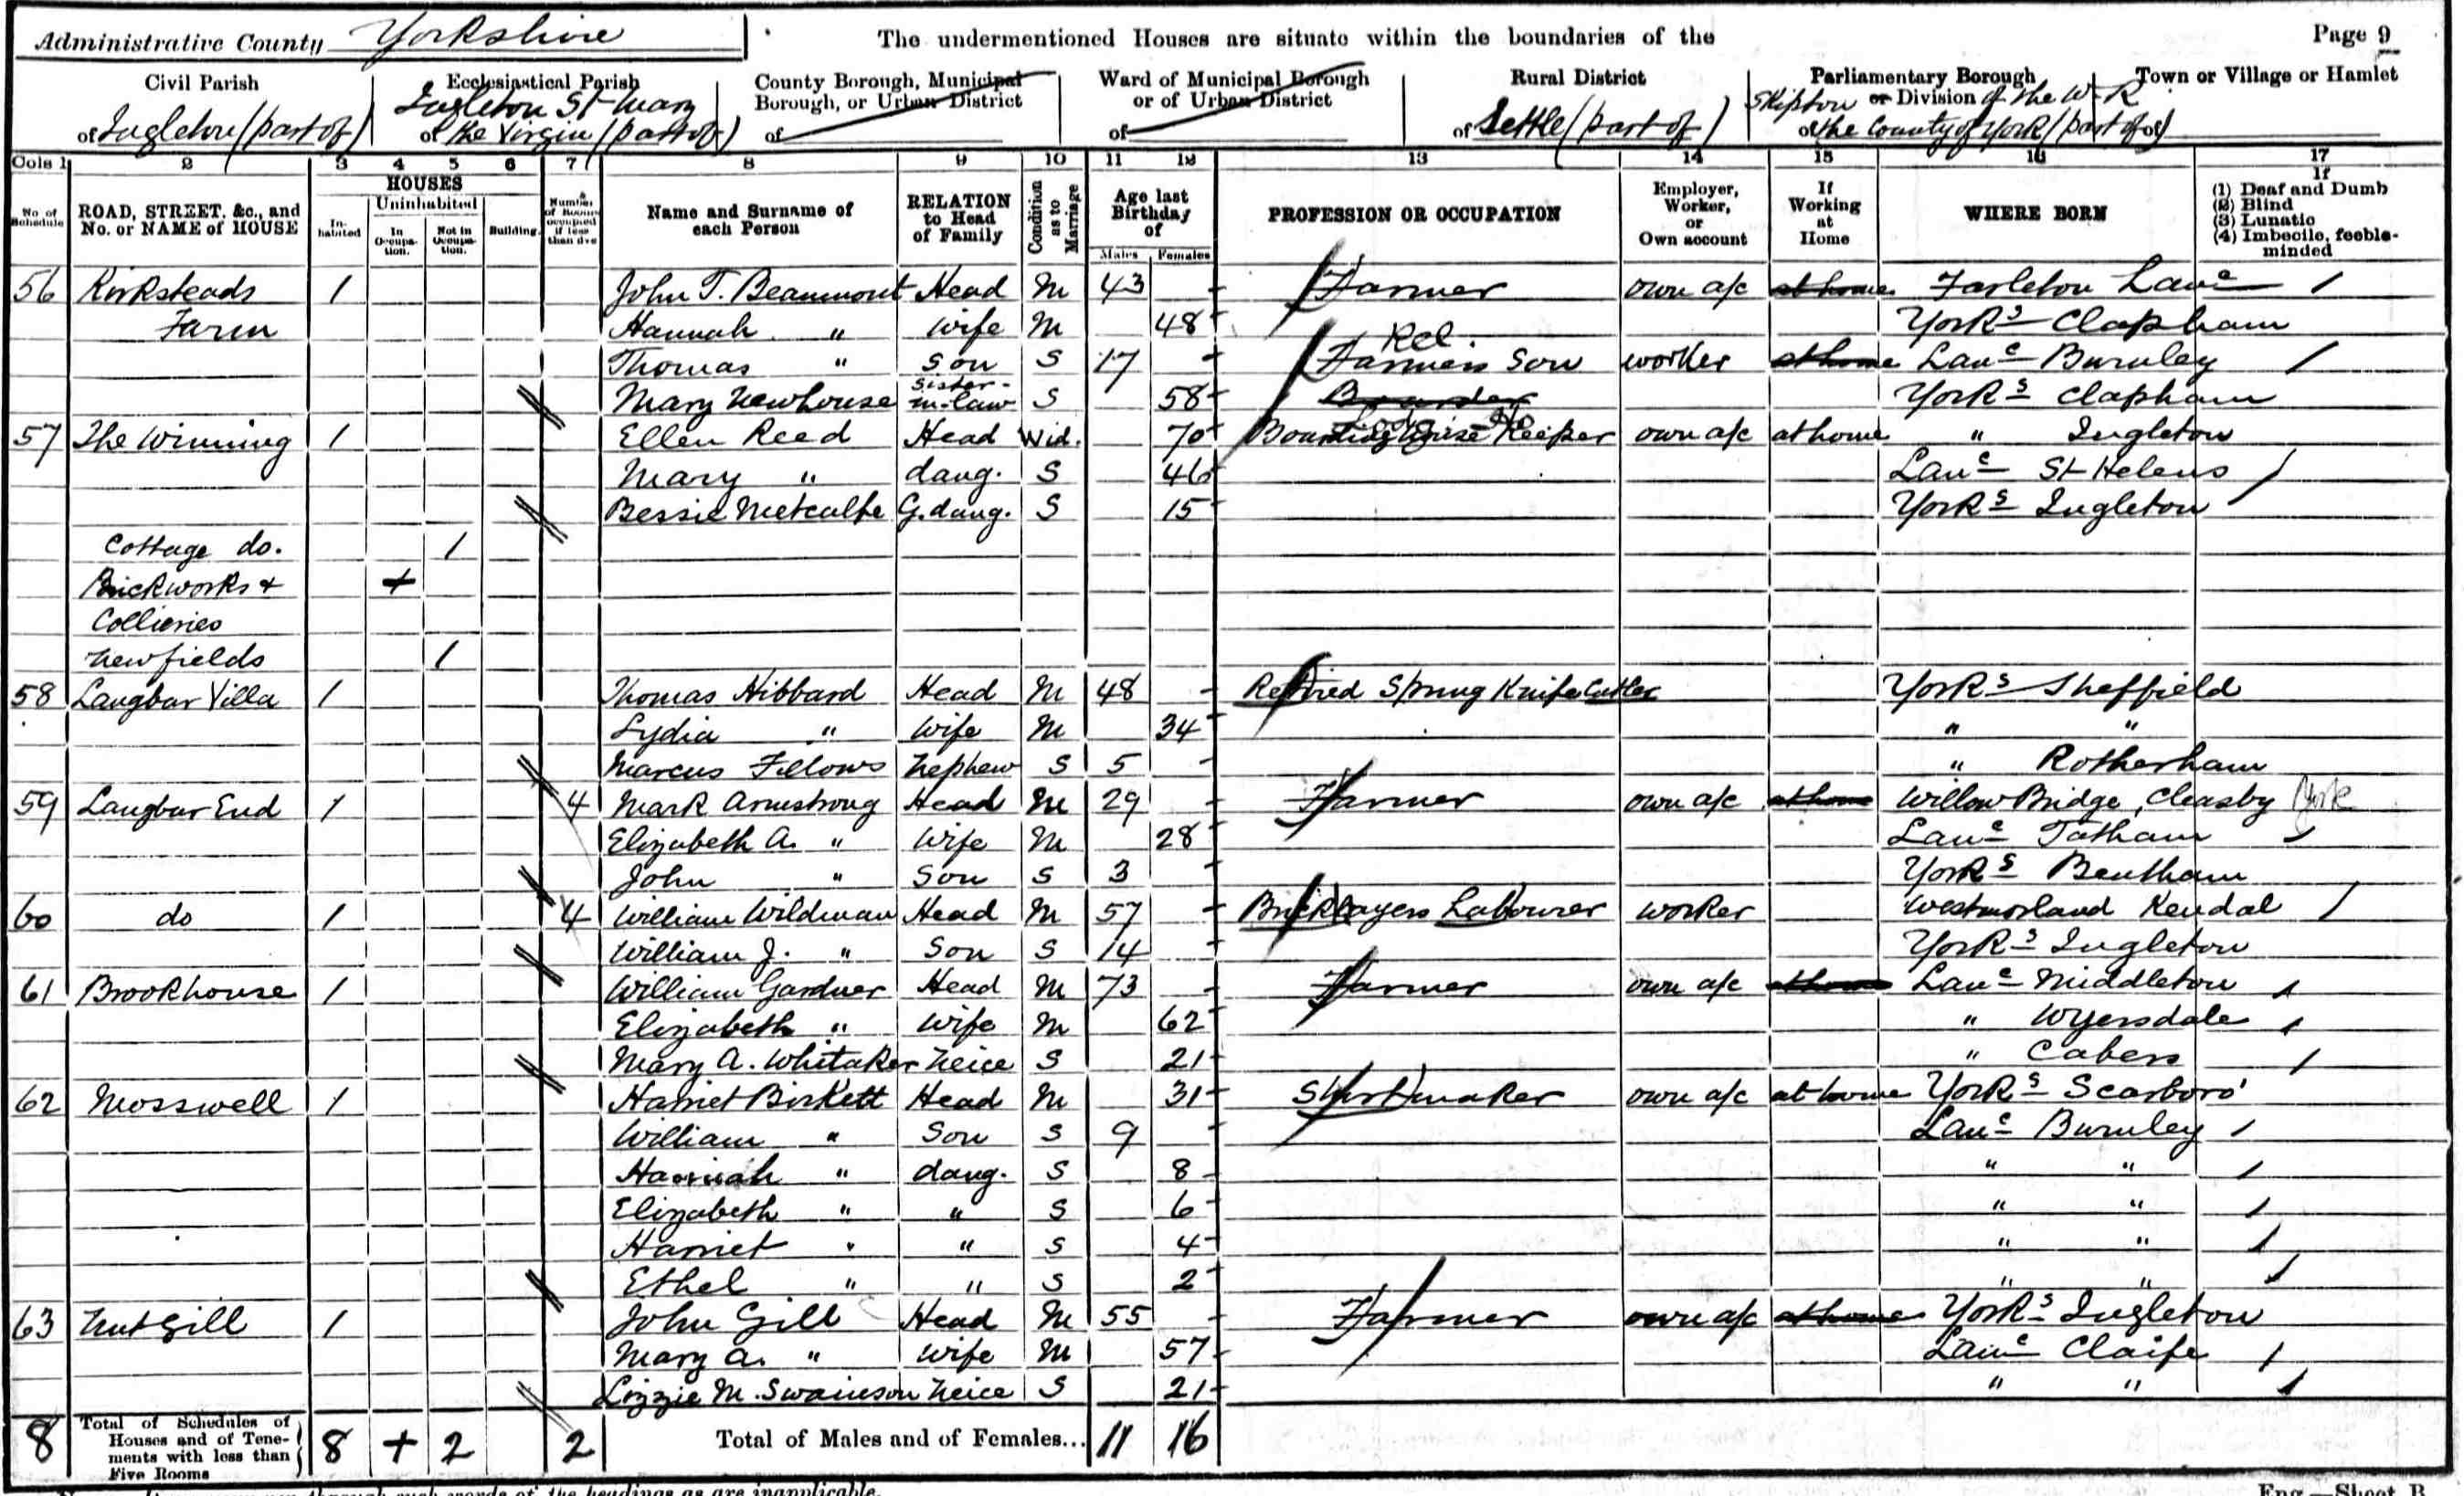 Administrative County Yorkshire
The undermentioned Houses are situate within the boundaries of the
Page 9
Civil Parish
of Ingleton (part of)
Ecclesiastical Parish
Ingleton St Mary
of the Virgin (part of)
County Borough, Municipal
Borough, or Urban District
of
Ward of Municipal Borough
or of Urban District
of
Rural District
of Settle (part of)
Parliamentary Borough
Skipton or Division of the W-R
of the County of York (part of)
Town or Village or Hamlet
of
Cols 1 2 3 4 5 6 7 8 9 10 11 12 13 14 15 16 17
No. of Schedule
ROAD, STREET, &c., and No. or NAME of HOUSE
HOUSES
Inhabited
Uninhabited
In Occupation.
Not in Occupation.
Building.
Number of Rooms occupied if less than five
Name and Surname of each Person
RELATION to Head of Family
Condition as to Marriage
Age last Birthday of
Males Females
PROFESSION OR OCCUPATION
Employer, Worker, or Own account
If Working at Home
WHERE BORN
If
(1) Deaf and Dumb
(2) Blind
(3) Lunatic
(4) Imbecile, feeble-minded
56 Kirksteads 1 John T. Beaumont Head M 43 - Farmer own a/c at home Farleton Lanc
Farm Hannah " Wife M 48 York s Clapham
Rel.
Thomas " Son S 17 - Farmers Son worker at home Lanc Burnley
Mary Newhouse sister-in-law S 58 Boarder York s Clapham
57 The Winning 1 Ellen Reed Head Wid. 70 Boarding House Keeper own a/c at home " Ingleton
Mary " daug. S 46 Lanc St Helens
Bessie Metcalfe G.daug. S 15 York s Ingleton
Cottage do. 1
Brickworks + +
Collieries
Newfields 1
58 Langbar Villa 1 Thomas Hibbard Head M 48 - Retired Spring Knife Cutler York s Sheffield
Lydia " Wife M 34 " "
Marcus Fellows Nephew S 5 - " Rotherham
59 Langbar End 1 4 Mark Armstrong Head M 29 - Farmer own a/c at home Willow Bridge, Cleasby York
Elizabeth A. " Wife M 28 Lanc Tatham
John " Son S 3 - York s Bentham
60 do 1 4 William Wildman Head M 57 - Bricklayers Labourer worker Westmorland Kendal
William J. " Son S 14 - York s Ingleton
61 Brookhouse 1 William Gardner Head M 73 - Farmer own a/c at home Lanc Middleton
Elizabeth " Wife M 62 " Wyersdale
Mary A. Whitaker Neice S 21 "
62 Mosswell 1 Harriet Birkett Head M 31 Shirtmaker own a/c at home York s Scarboro'
William " Son S 9 Lanc Burnley
Hannah " daug. S 8 " "
Elizabeth " " S 6 " "
Harriet " " S 4 " "
Ethel " " S 2 " "
63 Nutgill 1 John Gill Head M 55 - Farmer own a/c at home York s Ingleton
Mary A. " Wife M 57 Lanc Claife
Lizzie M. Swainson Neice S 21 " "
8 Total of Schedules of Houses and of Tenements with less than Five Rooms 8 + 2 2 Total of Males and of Females... 11 16
Eng.—Sheet B